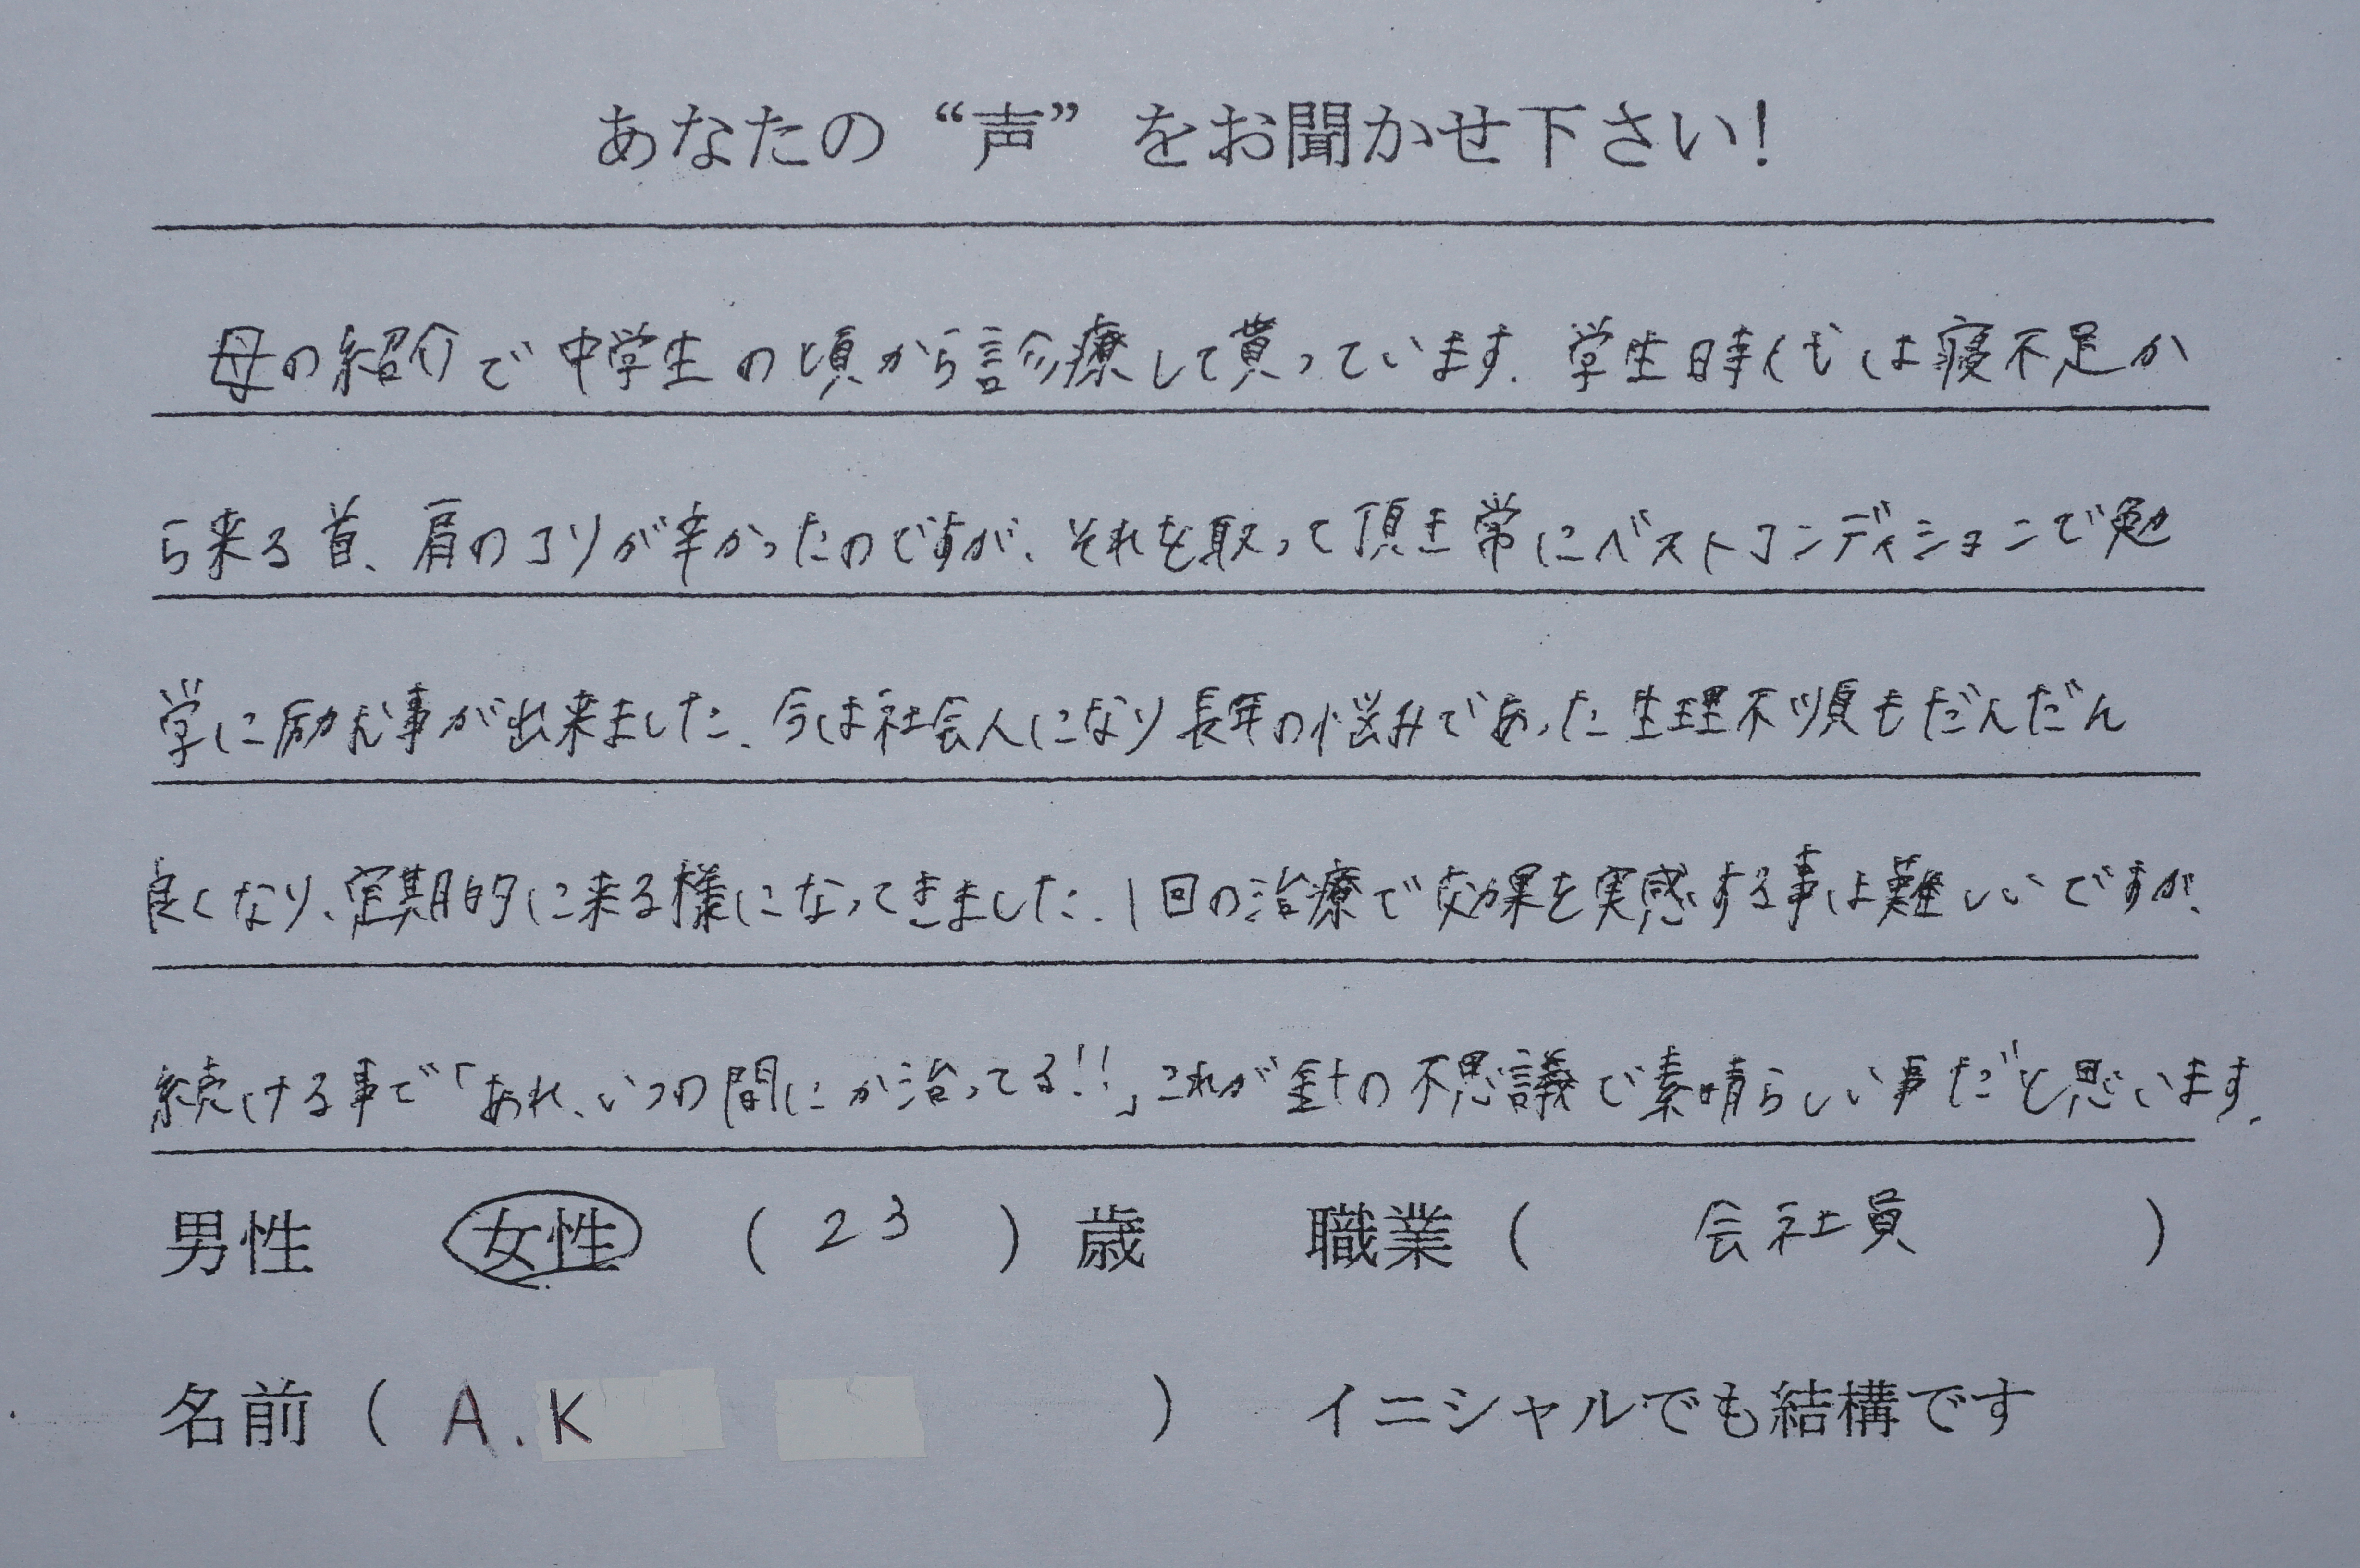 あなたの “声” をお聞かせ下さい!
母の紹介で中学生の頃から診療して貰っています。学生時代は寝不足か
ら来る首、肩のコリが辛かったのですが、それを取って頂き常にベストコンディションで勉
学に励む事が出来ました。今は社会人になり長年の悩みであった生理不順もだんだん
良くなり、定期的に来る様になってきました。1回の治療で効果を実感する事は難しいですが、
続ける事で「あれ、いつの間にか治ってる!!」これが針の不思議で素晴らしい事だと思います。
男性 女性 ( 23 ) 歳 職業 ( 会社員 )
名前 ( A.K ) イニシャルでも結構です